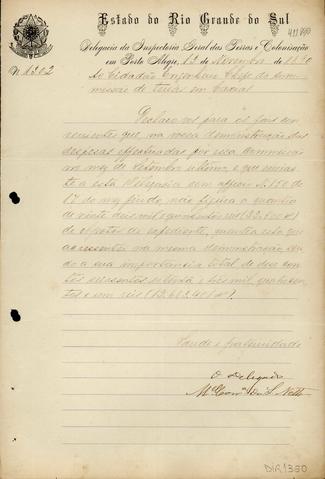 Estado do Rio Grande do Sul
Delegacia da Inspectoria Geral das Terras e Colonisação
em Porto Alegre, 13 de Novembro de 1890
N. 1302
Ao Cidadão Engenheiro Chefe da Com-
missão de terras em
Declaro vos para os fins con-
venientes que na vossa demonstração das
despesas effectuadas por essa Commissão
no mez de Setembro ultimo, e que envias-
te a esta Delegacia com officio n. 150 de
17 do mez findo, não figura a quantia
de vinte dois mil e quinhentos reis (22.500)
de expediente, quantia esta que
na mesma demonstração
do a sua importancia total de dois con-
tos seiscentos e tres mil quatrocen-
tos e um reis
Saude e fraternidade
O Delegado
Netto
DIR1350